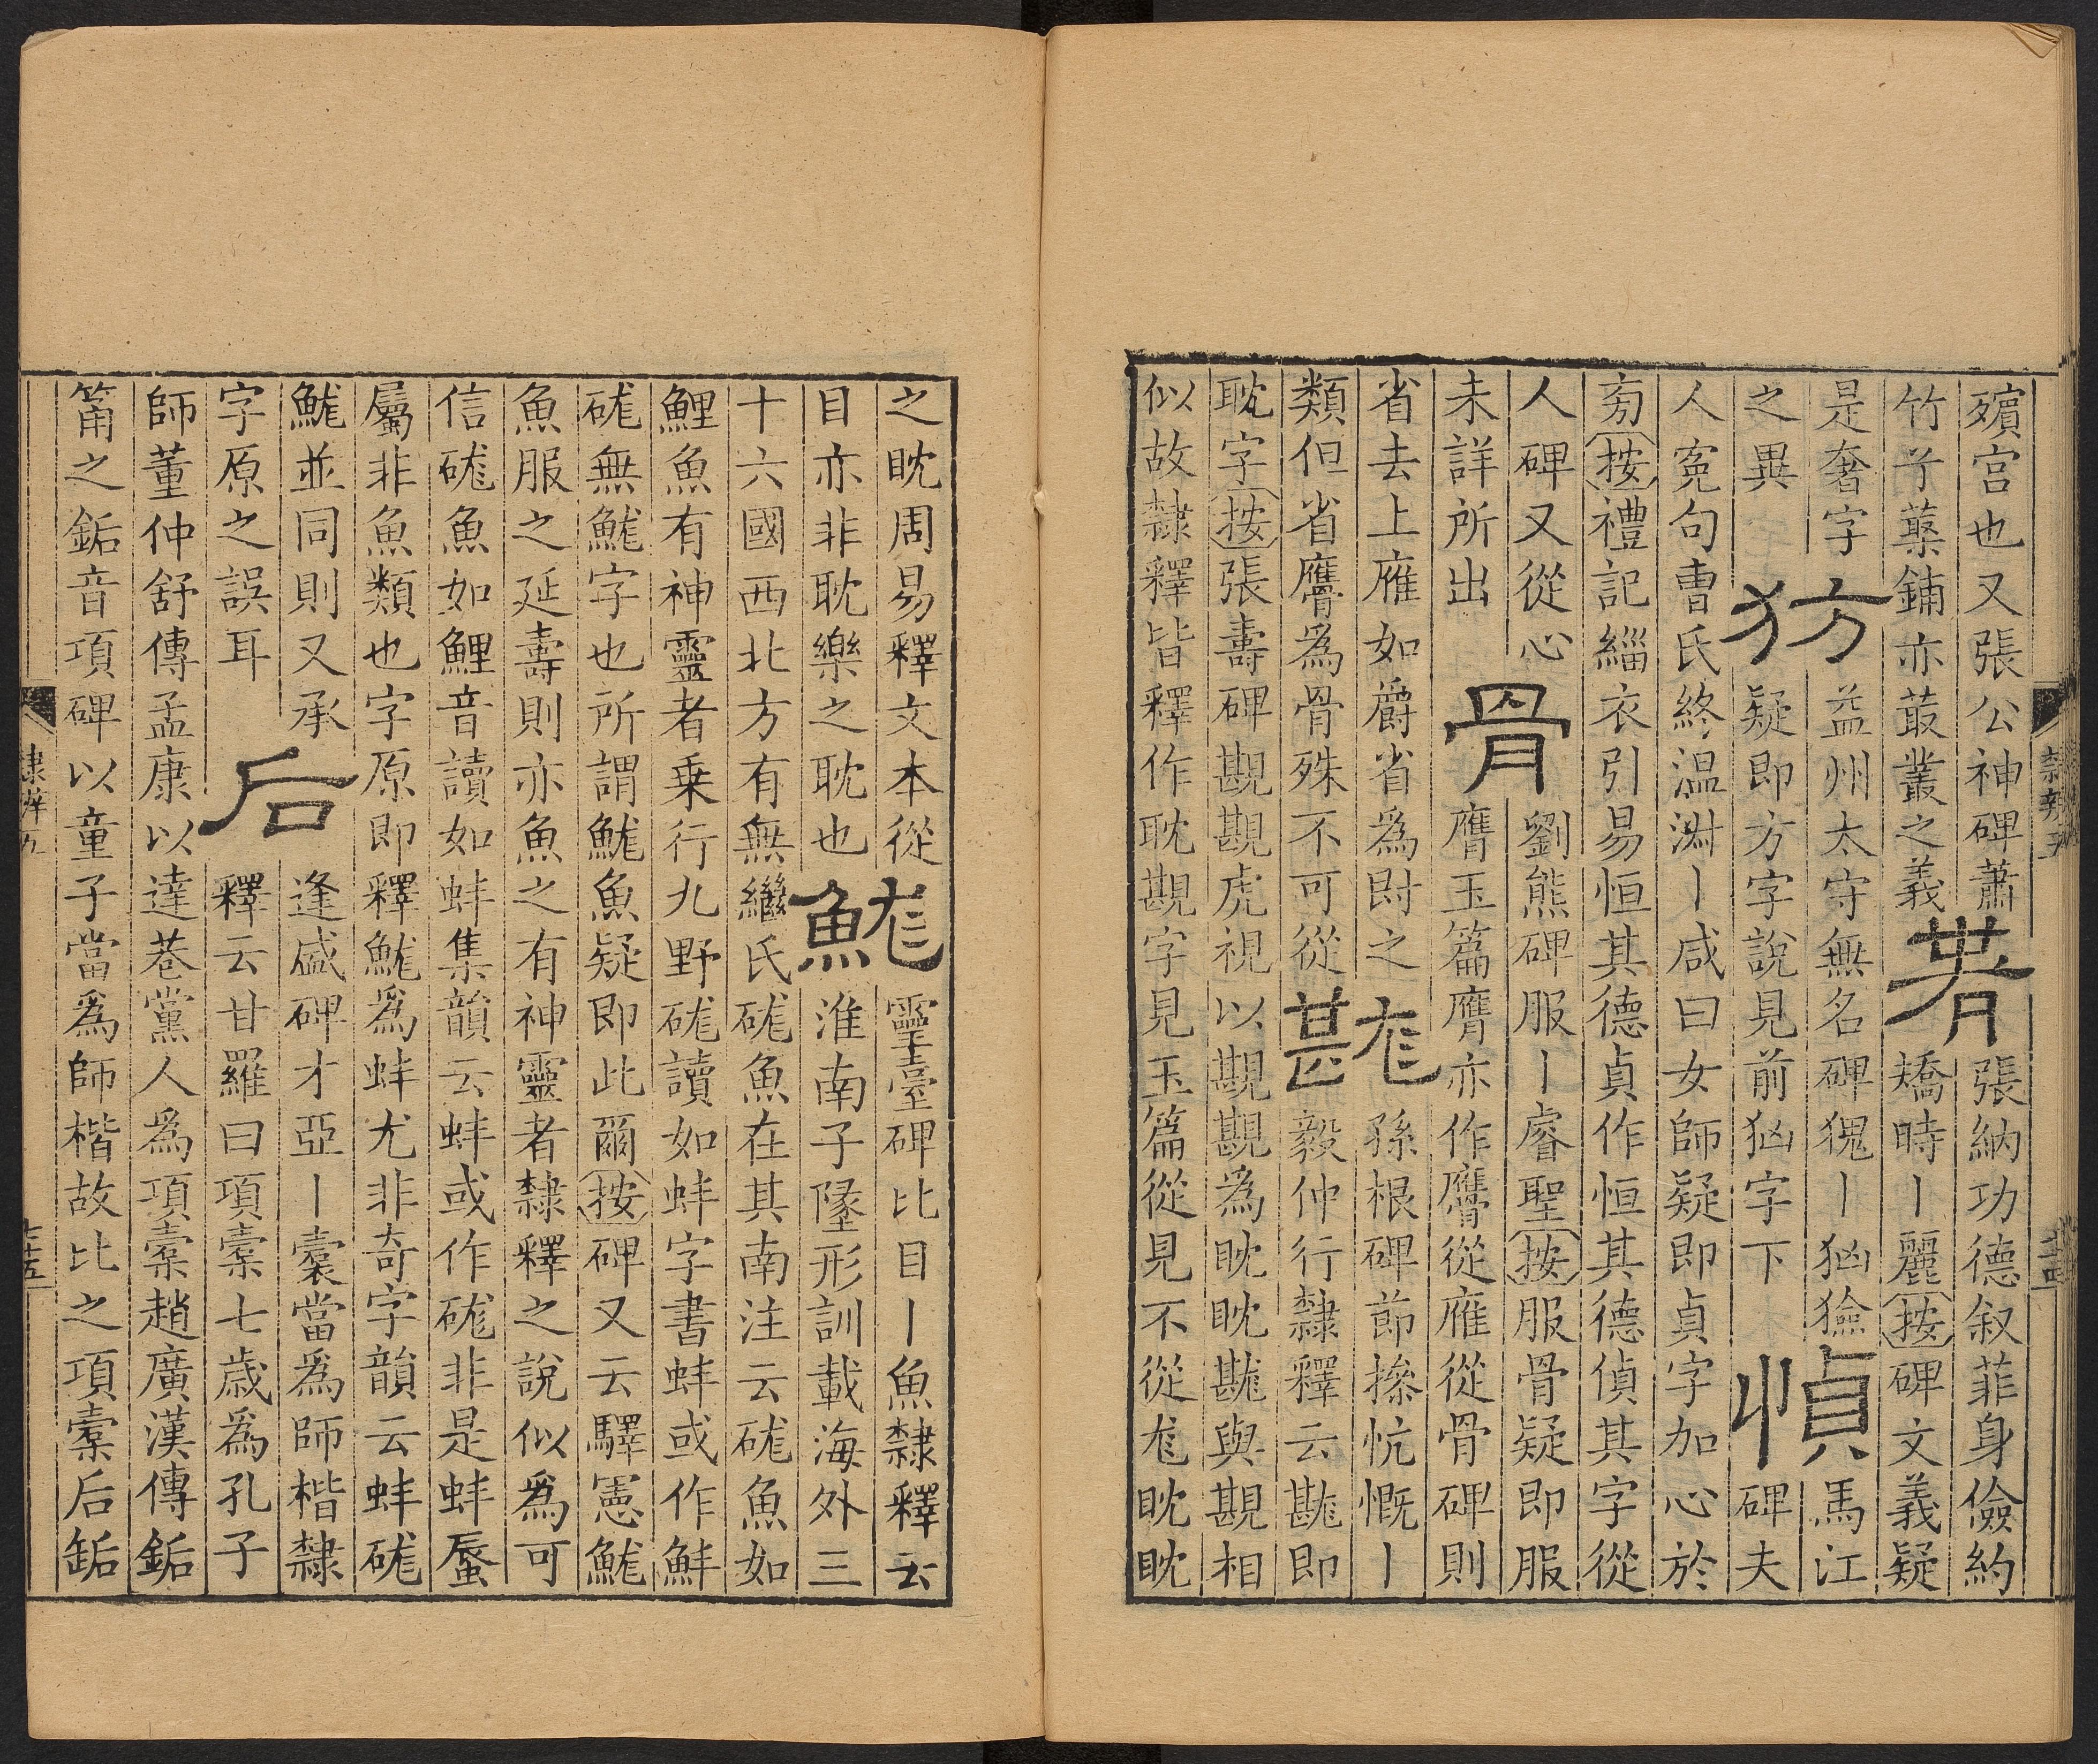 殯宮也又張公神碑蕭
竹芓蕐鋪亦菆叢之義
張納功德叙菲身儉約
矯時丨麗按碑文義疑
是奢字
之異
㕫
益州太守無名碑丨㐫獫
疑即方字說見前㐫字下
愼
馬江
碑夫
人寃句曹氏終温淵丨咸曰女師疑即貞字加心於
㫄按禮記緇衣引易恒其德貞作恒其德偵其字從
人碑又從心
未詳所出
骨
劉熊碑服丨睿聖按服骨疑即服
膺玉篇膺亦作從雁從骨碑則
省去上雁如爵省為之
類但省為骨殊不可從
孫根碑節操忼慨丨
毅仲行隸釋云即
耽字按張壽碑覘覘虎視以覘覘為眈眈與覘相
似故隸釋皆釋作耽覘字見玉篇從見不從眈眈
之眈周易釋文本從
目亦非耽樂之耽也
靈臺碑比目丨魚隸釋云
淮南子墬形訓載海外三
十六國西北方有無繼氏硥魚在其南注云硥魚如
鯉魚有神靈者乗行九野硥讀如蚌字書蚌或作鮮
硥無鮵字也所謂鮵魚疑即此爾按碑又云驛憲鮵
魚服之延壽則亦魚之有神靈者隸釋之說似爲可
信硥魚如鯉音讀如蚌集韻云蚌或作硥非是蚌蜃
屬非魚類也字原即釋鮵爲蚌尤非奇字韻云蚌硥
鮵並同則又承
字原之誤耳
后
逢盛碑才亞丨橐當爲師楷隸
釋云甘羅曰項橐七歳爲孔子
師董仲舒傳孟康以達巷黨人爲項橐趙廣漢傳鉐
筩之鉐音項碑以童子當爲師楷故比之項橐后鉐